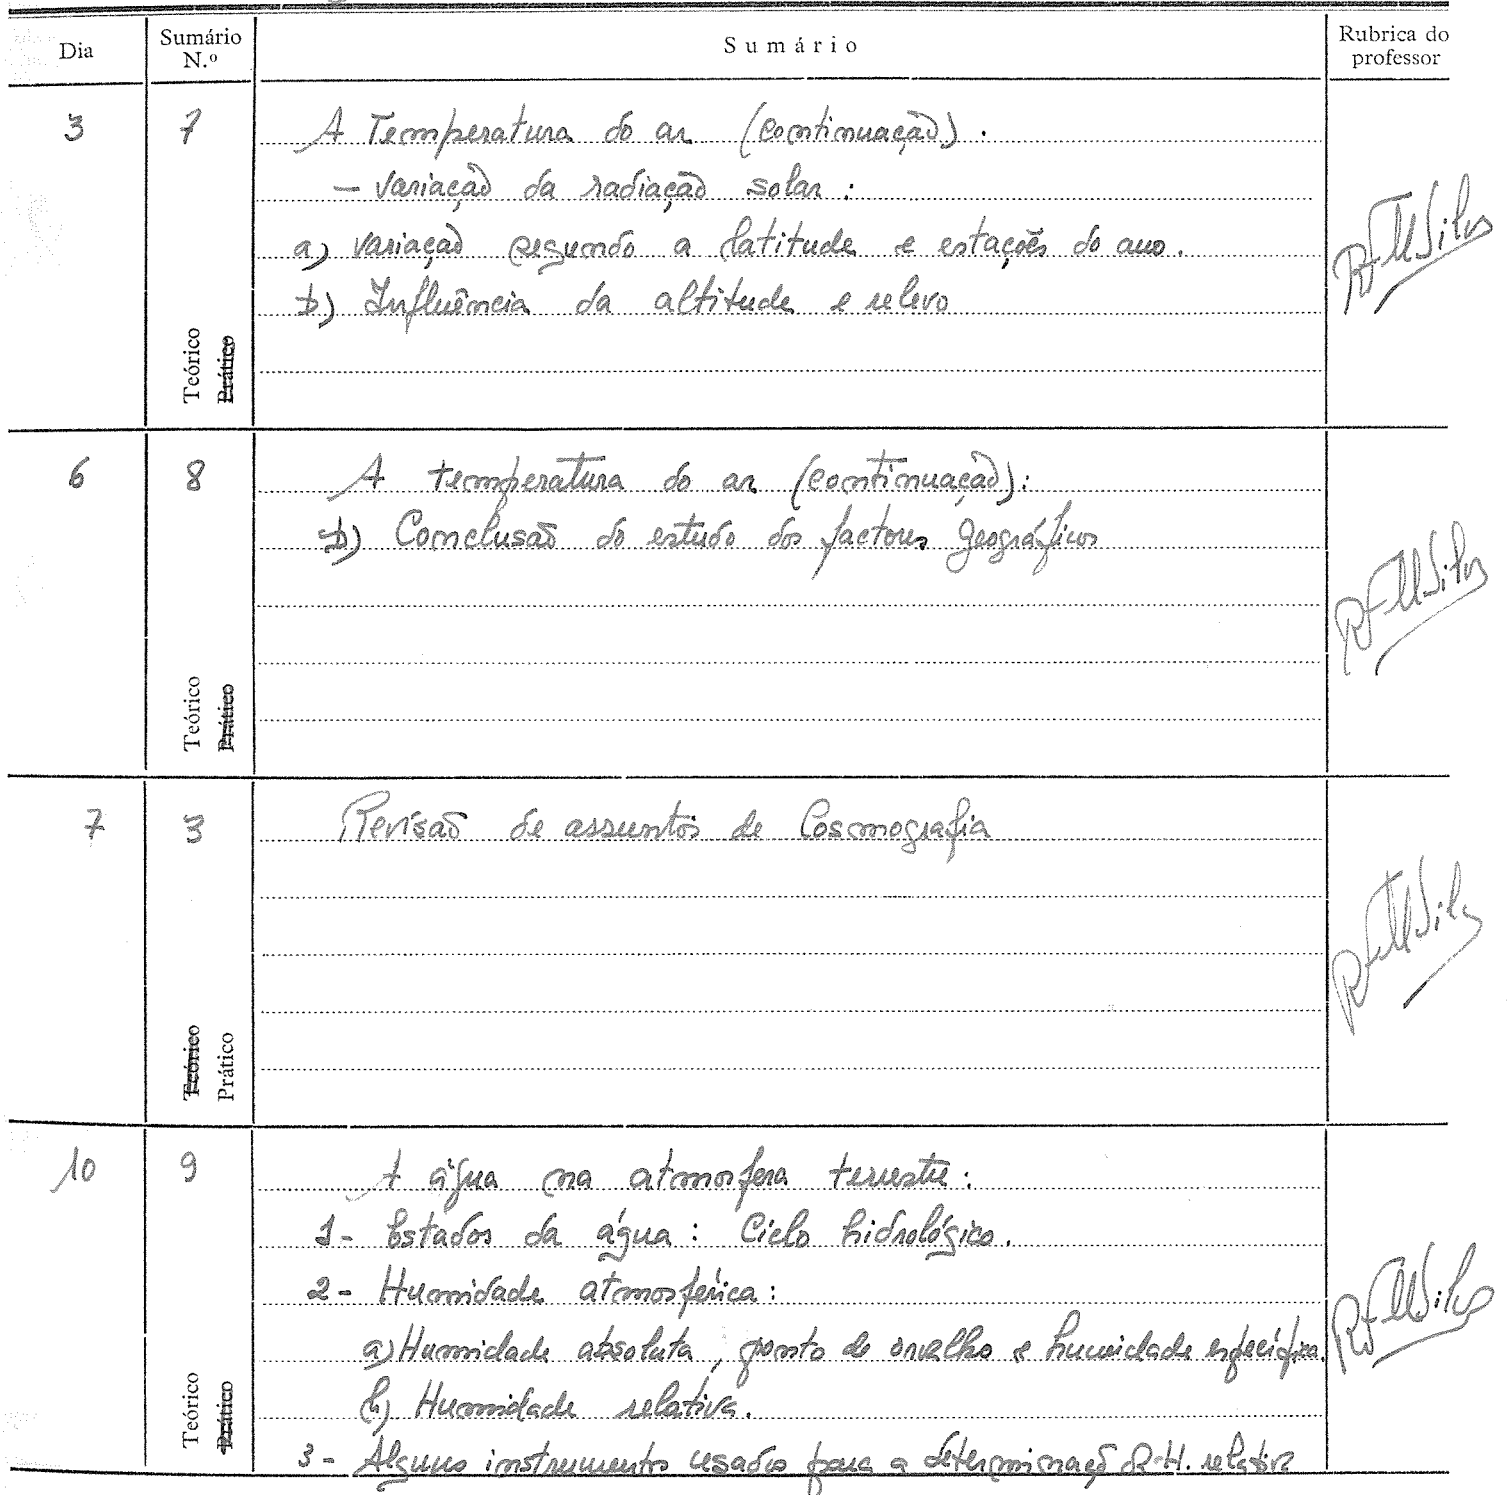 Dia Sumário N.º Sumário Rubrica do professor
3 7 A Temperatura do ar (continuação).
- Variação da radiação solar:
a) Variação segundo a latitude e estações do ano.
b) Influência da altitude e relevo
Teórico Prático
6 8 A temperatura do ar (continuação):
b) Conclusão do estudo dos factores geográficos
Teórico Prático
7 3 Revisão de assuntos de Cosmografia
Teórico Prático
10 9 A água na atmosfera terrestre:
1- Estados da água: Ciclo hidrológico.
2- Humidade atmosférica:
a) Humidade absoluta, ponto de orvalho e humidade específica.
b) Humidade relativa.
Teórico Prático
3- Alguns instrumentos usados para a determinação da H. relativa